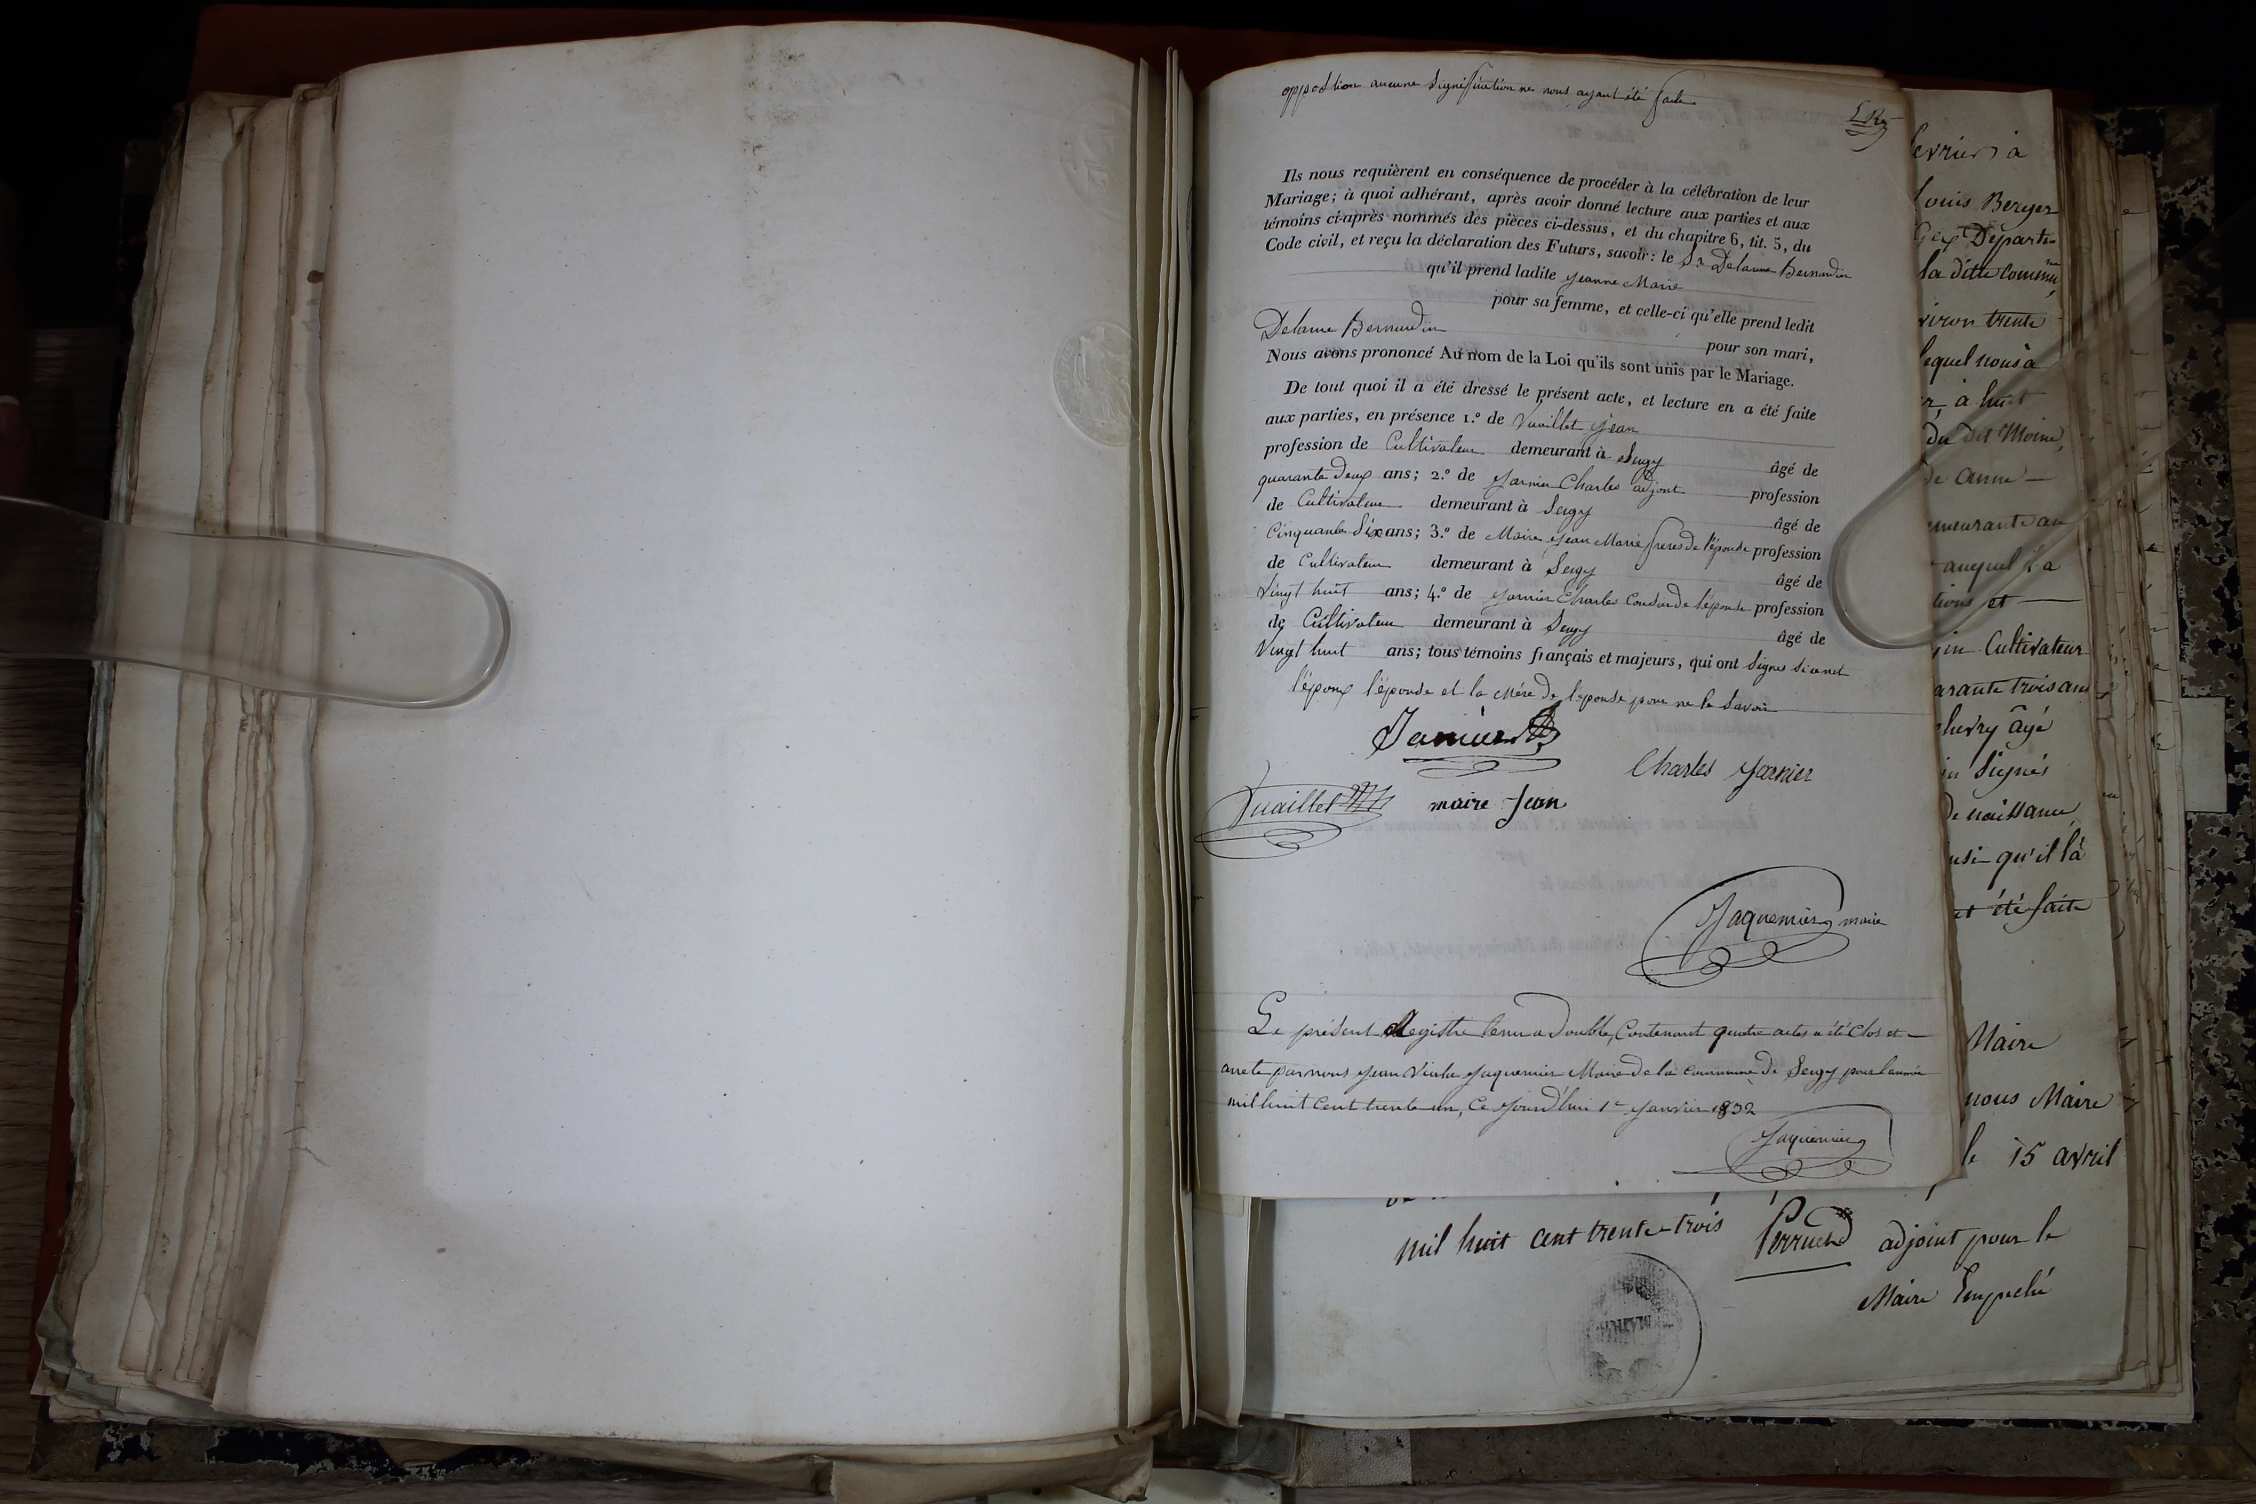 opposition aucune signiffication ne nous ayant été faite
Ils nous requièrent en conséquence de procéder à la célébration de leur
Mariage; à quoi adhérant, après avoir donné lecture aux parties et aux
témoins ci-après nommés des pièces ci-dessus, et du chapitre 6, tit. 5, du
Code civil, et reçu la déclaration des Futurs, savoir: le Sr Delarue Bernardin
qu'il prend ladite Jeanne Maire
pour sa femme, et celle-ci qu'elle prend ledit
Delarue Bernardin pour son mari,
Nous avons prononcé Au nom de la Loi qu'ils sont unis par le Mariage.
De tout quoi il a été dressé le présent acte, et lecture en a été faite
aux parties, en présence 1.º de Vuaillet Jean
profession de Cultivateur demeurant à Sergy âgé de
quarante deux ans; 2.º de Janier Charles adjoint profession
de Cultivateur demeurant à Sergy âgé de
Cinquante Six ans; 3.º de Maire Jean Marie freres de l'épouse profession
de Cultivateur demeurant à Sergy âgé de
Vingt huit ans; 4.º de Janier Charles Cousin de l'épouse profession
de Cultivateur demeurant à Sergy âgé de
Vingt huit ans; tous témoins français et majeurs, qui ont signés si ce n'est
l'époux l'épouse et la mère de l'épouse pour ne le savoir
Janier
Charles Janier
Vuaillet
maire Jean
Jaquemier maire
Le présent Registre tenu a Double, Contenant quatre actes a été Clos et
arrete par nous Jean Jaquemier Maire de la commune de Sergy pour l'année
mil huit Cent trente un, Ce Jourd'hui 1er Janvier 1832
Jaquemier
evrier à
Louis Berger
Gex Départe-
la dite commune
viron trente
lequel nous a
à huit
du dit Moine,
de anne
emeurante au
auquel il a
tions et
in Cultivateur
arante trois ans
hevry âgé
in Signés
de naissance
insi qu'il l'a
et été faite
Maire
nous Maire
le 15 avril
mil huit cent trente-trois Perruchd adjoint pour le
Maire Empeché
MAIRIE